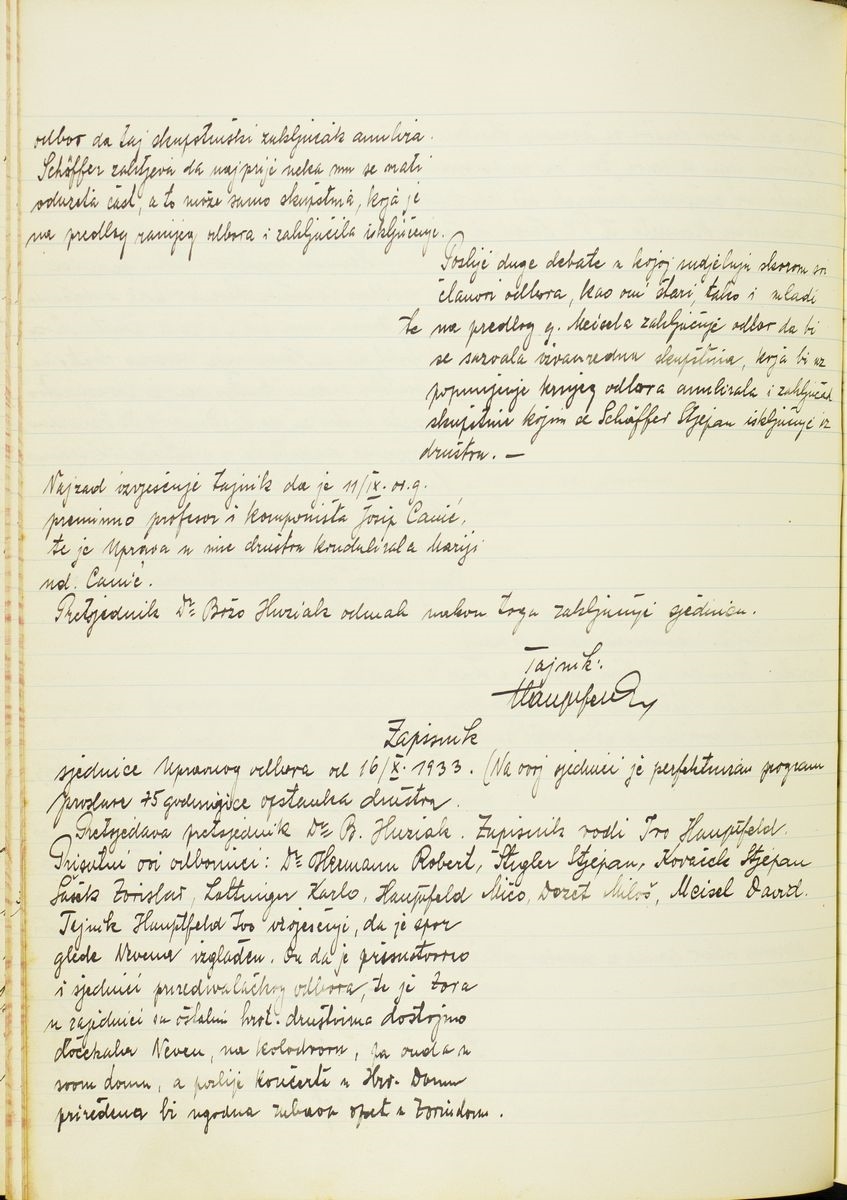 odbor da taj skupštinski zaključak anulira.
Schöffer zahtjeva da najprije neka mu se vrati
oduzeta čast, a to može samo skupština, koja je
na predlog ranijeg odbora i zaključila isključenje.
Poslije duge debate u kojoj sudjeluju skorom svi
članovi odbora, kao ovi stari, tako i mladi
te na predlog g. Meisela zaključuje odbor da bi
se sazvala vanredna skupština, koja bi uz
popunjenje odbora anulirala i zaključak
skupštine kojim se Schöffer Stjepan isključuje iz
društva. —
Najzad izvješćuje tajnik da je 11/IX. ov. g.
preminuo profesor i komponista Josip Canić,
te je Uprava u ime društva kondolirala Mariji
ud. Canić.
Pretsjednik Dr. Božo Huziak odmah nakon toga zaključuje sjednicu.
Tajnik:
Hauptfeld
Zapisnik
sjednice Upravnog odbora od 16/X. 1933. (Na ovoj sjednici je perfektuiran program
proslave 75 godišnjice opstanka društva.
Pretsjedava pretsjednik Dr. B. Huziak. Zapisnik vodi Ivo Hauptfeld.
Prisutni ovi odbornici: Dr. Hermann Robert, Stugler Stjepan, Kovaček Stjepan
Šašek Zorislav, Karlo, Hauptfeld Mićo, Dozet Miloš, Meisel David.
Tajnik Hauptfeld Ivo izvješćuje, da je spor
glede Nevena izglađen. On da je prisustvovao
i sjednici priređivalačkog odbora, te je Zora
u zajednici sa ostalim hrv. društvima dostojno
dočekala Neven, na kolodvoru, pa onda u
svom domu, a poslije koncerta u Hrv. Domu
priređena bi ugodna zabava opet u Zorindomu.